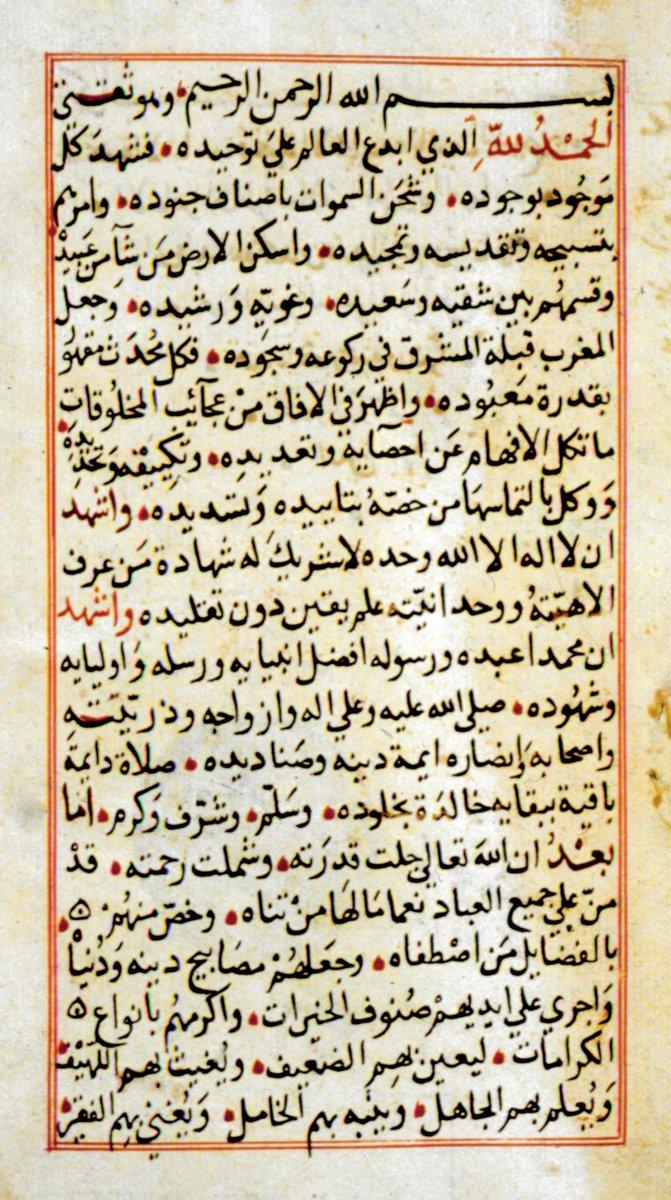 بسم الله الرحمن الرحيم • وهو ثقتي
الحمْدُ للهِّ الذي ابدع العالم علي توحيده • فشهدَ كل
مَوجُود بوجوده • وشحَن السموات باصناف جنوده • وامرهم
بتسبيحه وتقديسه وتمجيده • واسكن الارض مَن شآ من عَبيدْ
وقسمهُم بين شقيه وسَعيده • وغويّه وَرشيده • وَجعل
المغرب قبلة المشرق في ركوعه وسجوده • فكل مُحْدَث مقهوُ
بقدرة مَعبُوده • واظهرَ في الافاق منْ عجآئب المخلوُقات
ما تكل الافهام عَن احصآية وتعديده • وتكييفْه وَتحديده
وَوكل بالتماسهَا من خصّهُ بتاييده وَتسديده • واشهد
ان لا اله الا الله وحده لا شريك له شهادة مَن عرف
الاهيّتهُ ووحدانيّته علم يقين دون تقليده واشهد
ان محمدا عبده ورسوله افضل انبيايه ورسله وَاوليايه
وشهُوده • صلي الله عليه وعلي اله وازواجه وذريّتّه
واصحابه وَانصاره ايمة دينه وصَناديده • صلاة دايمةَ
باقية ببقايه خالدَة بخلوده • وسَلّم • وشرّف وَكرم • اما
بعْدُ ان اللهَ تعالي جلت قدرَته • وشملت رحمته • قدْ
منّ علي جميع العباد نعما مَالهَا منْ تناه • وخصّ منهُمْ
بالفضَايل مَن اصْطفاه • وجعَلهُمْ مصَابيح دينه وَدُنياْ
وَاجري علي ايديهمْ صُنوف الخيرات • واكرمهُم بانواع
الكرامات • ليعين بهم الضعيف • ويُغيث بهم اللهيْف
وَيُعلم بهم الجاهل • وينبّه بهم الخامل • وَيُغني بهم الفقير